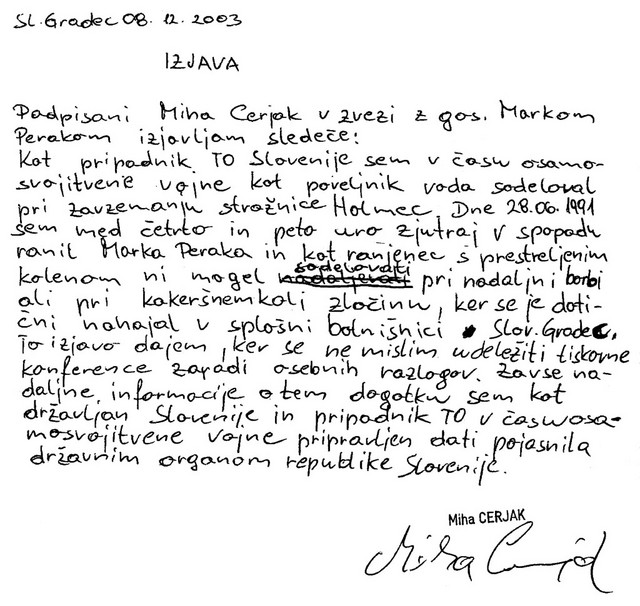 Sl. Gradec 08. 12. 2003
IZJAVA
Podpisani Miha Cerjak v zvezi z gos. Markom
Perakom izjavljam sledeče:
Kot pripadnik TO Slovenije sem v času osamo-
svojitvene vojne kot poveljnik voda sodeloval
pri zavzemanju stražnice Holmec. Dne 28.06.1991
sem med četrto in peto uro zjutraj v spopadu
ranil Marka Peraka in kot ranjenec s prestreljenim
kolenom ni mogel sodelovati pri nadaljni borbi
ali pri kakeršnemkoli zločinu, ker se je doti-
čni nahajal v splošni bolnišnici Slov. Gradec.
To izjavo dajem, ker se ne mislim udeležiti tiskovne
konference zaradi osebnih razlogov. Za vse na-
daljne informacije o tem dogotku sem kot
državljan Slovenije in pripadnik TO v času osa-
mosvojitvene vojne pripravljen dati pojasnila
državnim organom republike Slovenije.
Miha CERJAK
Miha Cerjak